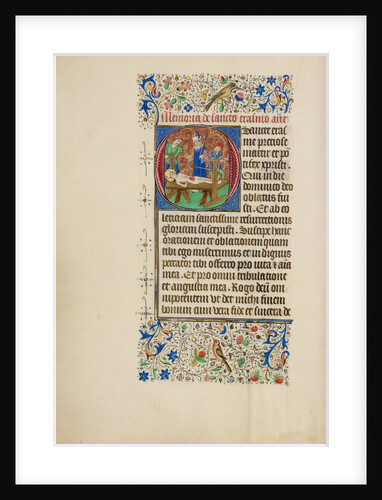 Memoria de sancto erasmo añt
Sancte eras
me preciose
martir et pō
tifex xpristi.
Qui in die
dominico deo
oblatus fui
sti. Et ab eo
leticiam sanctissime resurrectionis
gloriam suscepisti. Suscipe hanc
orationem et oblationem quam
tibi ego miserrimus et indignus
peccator tibi offerro pro vita et aīa
mea. Et pro omni tribulatione
et angustia mea. Rogo deū om
nipotentem vt det michi finem
bonum cum vera fide et sincera de